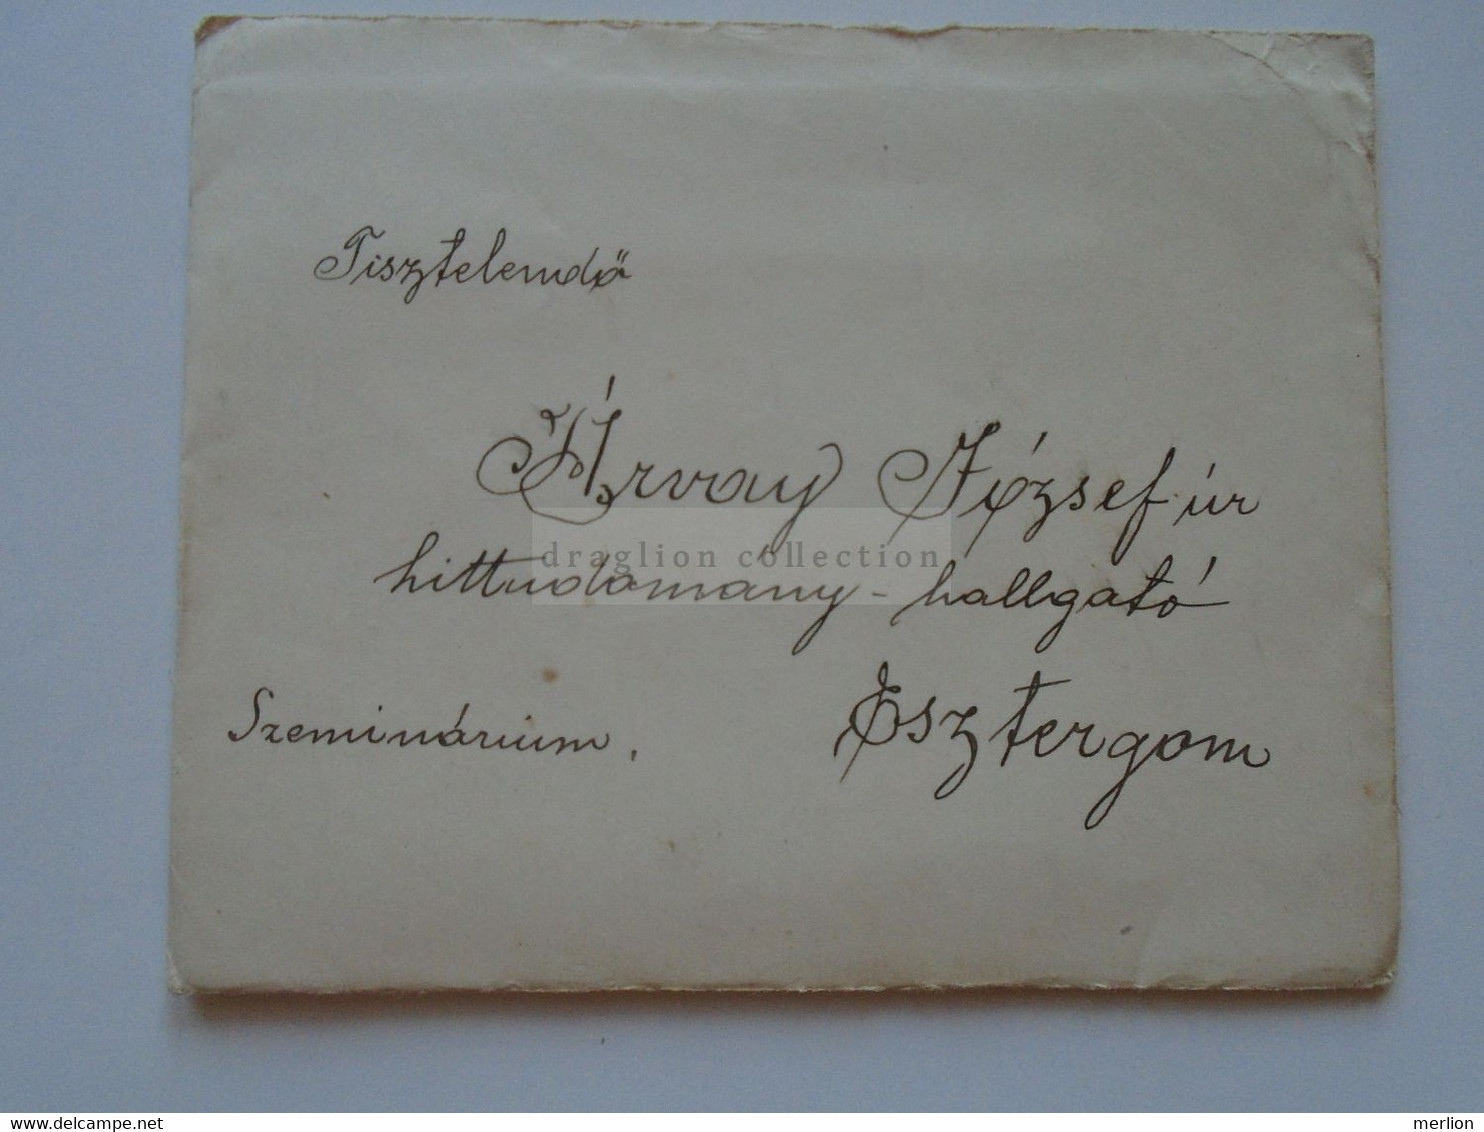 Tisztelendő
Árvay József úr
draglion collection
hittudomány-hallgató
Esztergom
Szeminárium.
delcampe.net
merlion